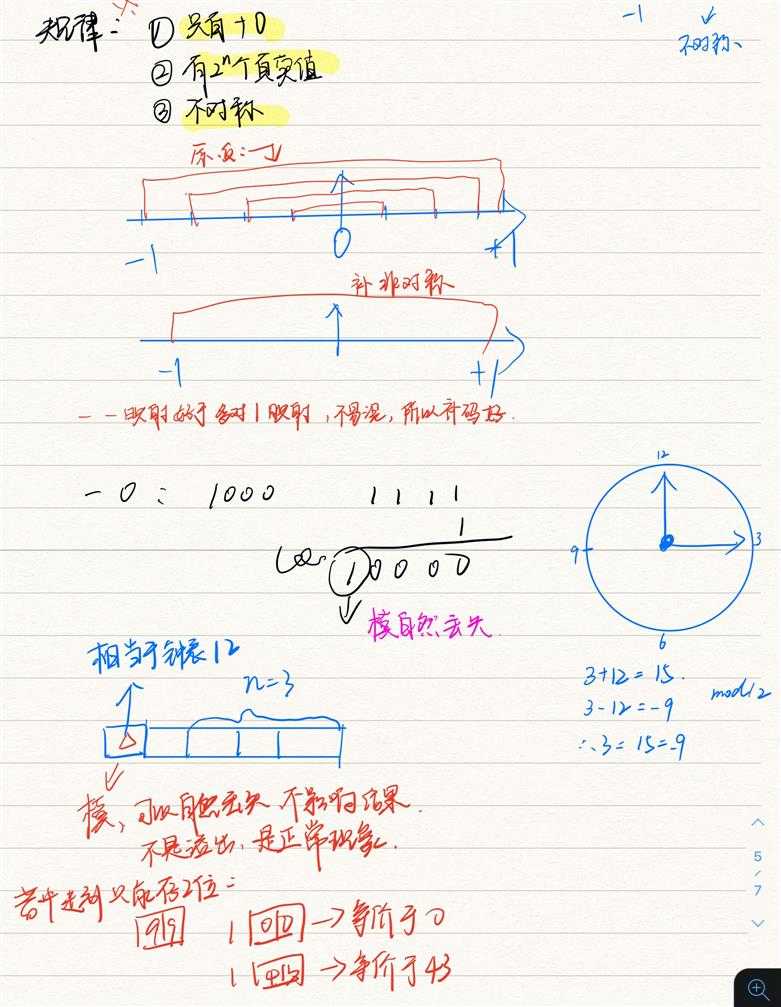 -1
不对称、
规律: ① 只有+0
② 有2ⁿ个真实值
③ 不对称
原.反:一一
-1 0 +1
补非对称
-1 +1
一一映射好于多对1映射,不易混,所以补码好.
-0: 1000 1111
1
1 0 0 0 0
模自然丢失.
12
3
9
6
相当于钟表12
n=3
3+12=15.
3-12=-9 mod12
∴3=15=-9
模,可以自然丢失 不影响结果.
不是溢出,是正常现象.
若十进制只能存2位:
99 1 00 → 等价于0
1 43 → 等价于43
5
/
7